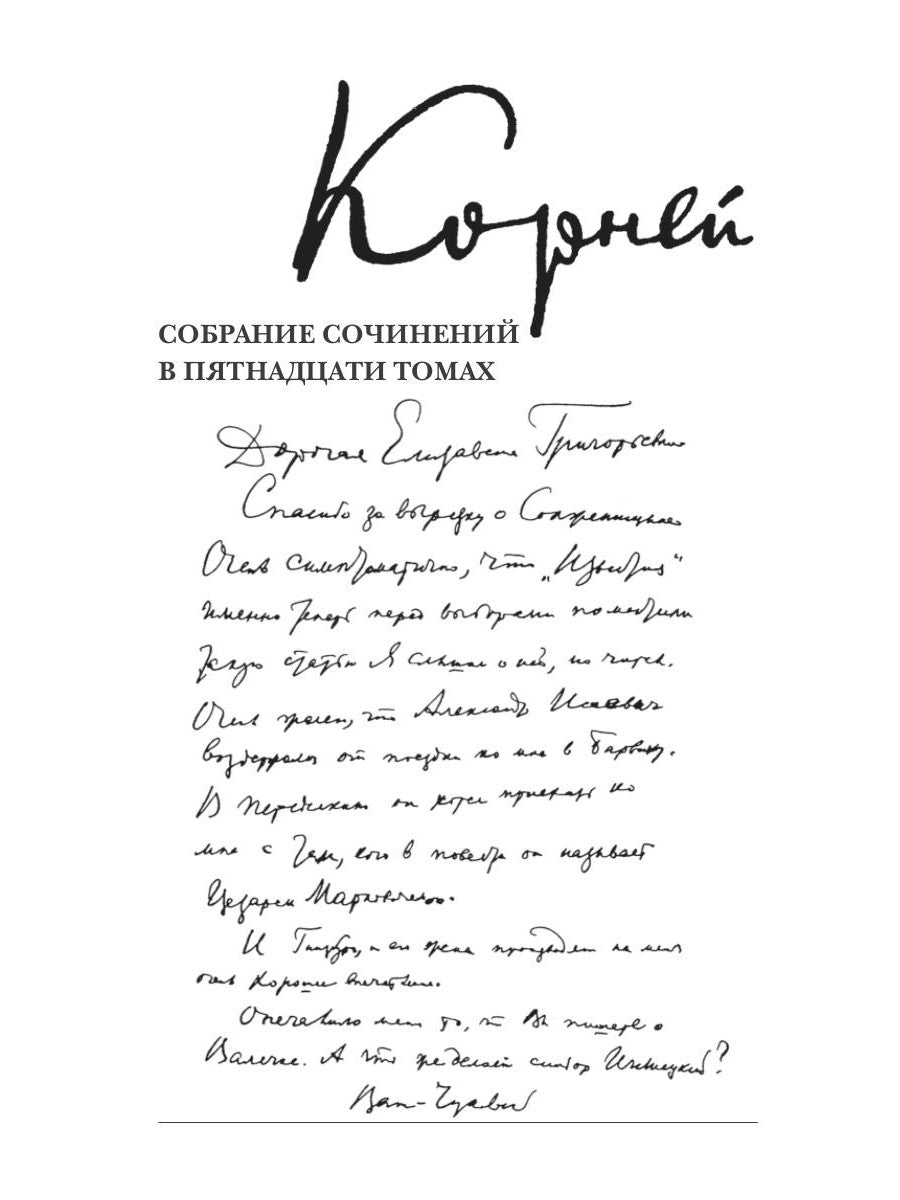 Корней
СОБРАНИЕ СОЧИНЕНИЙ
В ПЯТНАДЦАТИ ТОМАХ
Дорогая Елизавета Григорьевна
Спасибо за вырезку о Солженицыне
Очень симптоматично, что „Известия“
именно теперь перед выборами поместили
такую статью Я слышал о ней, но не читал.
Очень жалею, что Александр Исаевич
воздержался от поездки ко мне в Барвиху.
В Переделкино он хотел приехать ко
мне с тем, кого в повести он называет
Цезарем Марковичем.
И он, и его жена производят на меня
очень хорошее впечатление.
Опечалило меня то, что Вы пишете о
Валечке. А что делает синьор
Ваш Чуковский